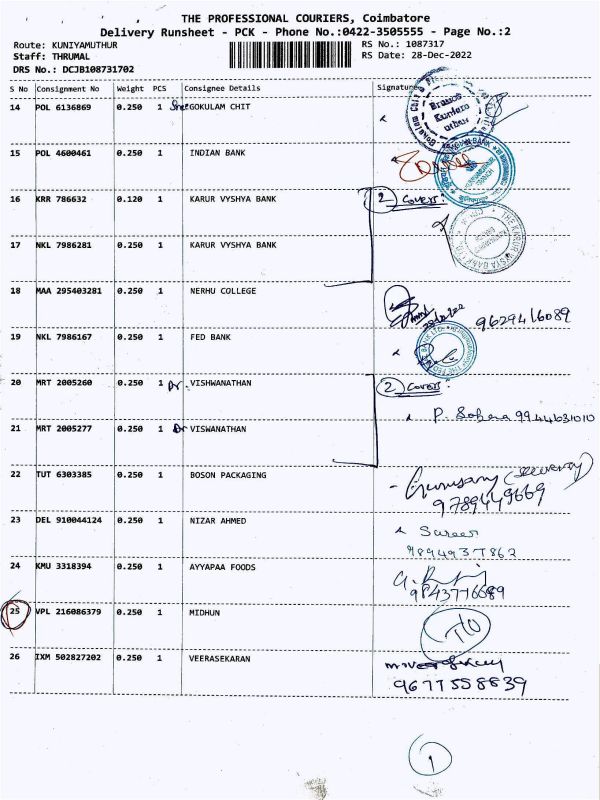 THE PROFESSIONAL COURIERS, Coimbatore
Delivery Runsheet - PCK - Phone No.:0422-3505555 - Page No.:2
Route: KUNIYAMUTHUR RS No.: 1087317
Staff: THRUMAL RS Date: 28-Dec-2022
DRS No.: DCJB108731702
S No Consignment No Weight PCS Consignee Details Signature
14 POL 6136869 0.250 1 Shree GOKULAM CHIT
15 POL 4600461 0.250 1 INDIAN BANK
16 KRR 786632 0.120 1 KARUR VYSHYA BANK 2 Covers:
17 NKL 7986281 0.250 1 KARUR VYSHYA BANK
18 MAA 295403281 0.250 1 NERHU COLLEGE 9629416089
19 NKL 7986167 0.250 1 FED BANK
20 MRT 2005260 0.250 1 Dr. VISHWANATHAN 2 Covers:
21 MRT 2005277 0.250 1 Dr VISWANATHAN P. 9944631010
22 TUT 6303385 0.250 1 BOSON PACKAGING (Security)
9789449669
23 DEL 910044124 0.250 1 NIZAR AHMED
9894937862
24 KMU 3318394 0.250 1 AYYAPAA FOODS
9843776689
25 VPL 216086379 0.250 1 MIDHUN
26 IXM 502827202 0.250 1 VEERASEKARAN
9677558839
1